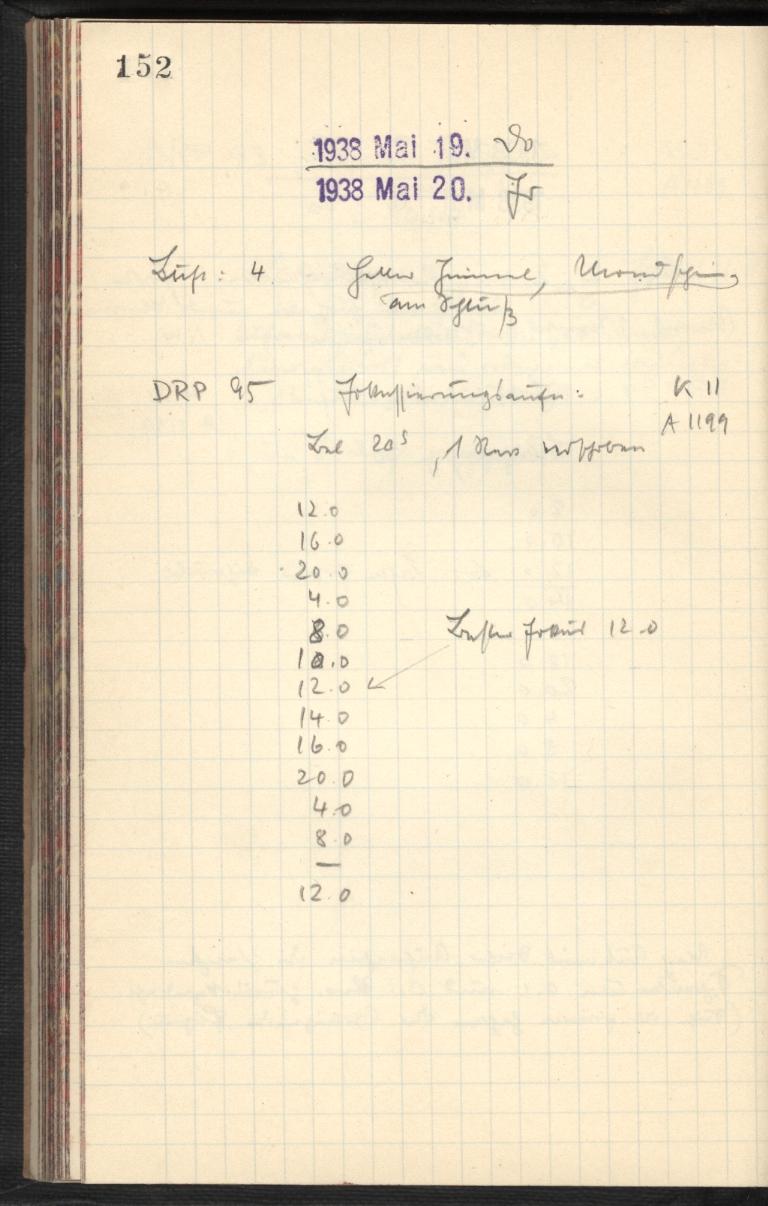 152
1938 Mai 19. Do
1938 Mai 20. Fr
Luft: 4 Heller Himmel, Mondschein,
am Schluß
DRP 95 Fokussierungsaufn: K 11
A 1199
Bel 20s, 1 Rev verschoben
12.0
16.0
20.0
4.0
8.0 Bester Fokus 12.0
10.0
12.0
14.0
16.0
20.0
4.0
8.0
—
12.0